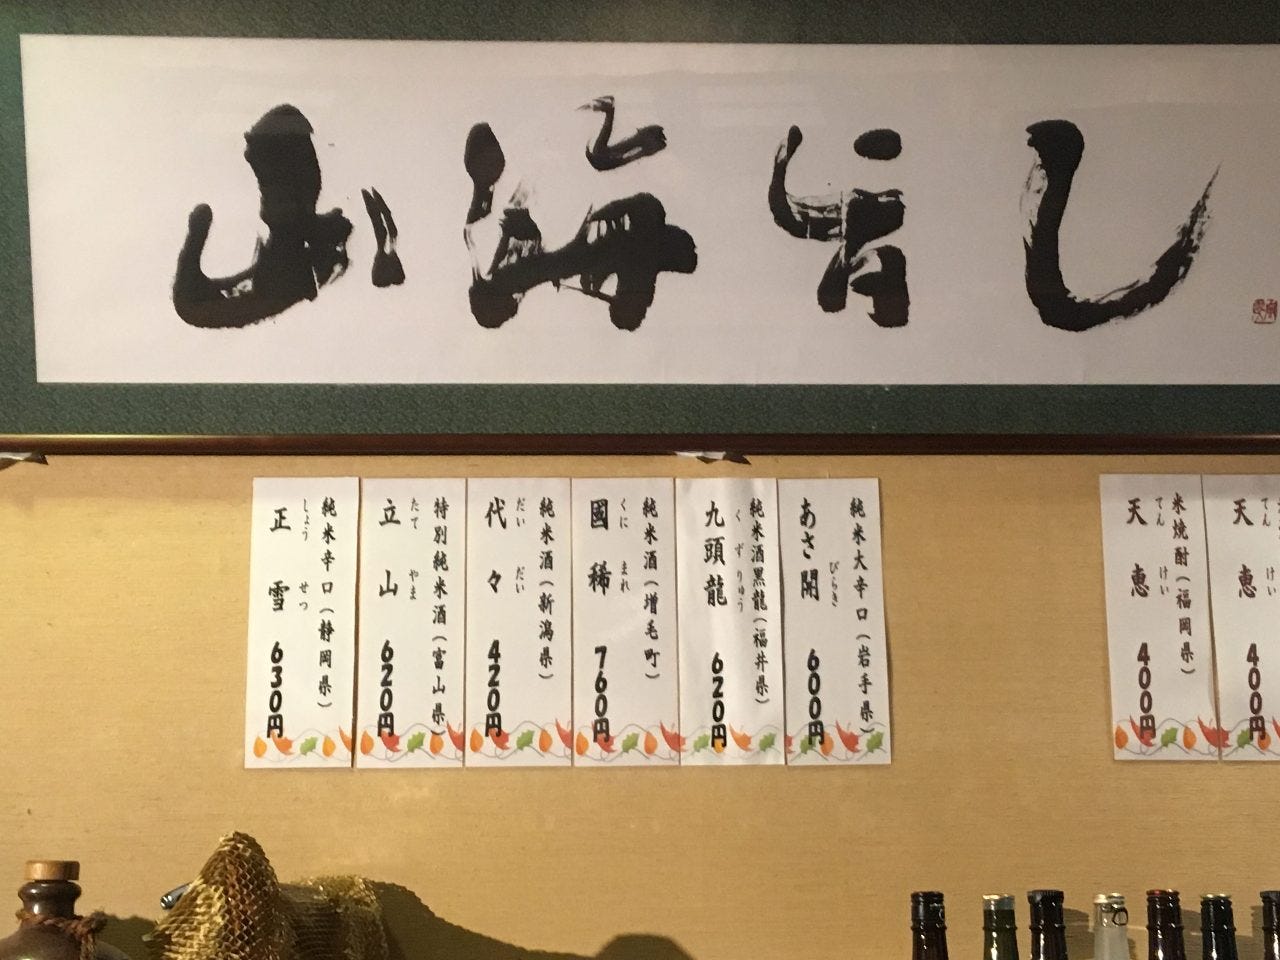 山海皆し
純米大辛口(岩手県)
あさ開
びらき
600円
純米酒黒龍(福井県)
九頭龍
くずりゅう
620円
純米酒(増毛町)
國稀
くにまれ
760円
純米酒(新潟県)
代々
だいだい
420円
特別純米酒(富山県)
立山
たてやま
620円
純米辛口(静岡県)
正雪
しょうせつ
630円
米焼酎(福岡県)
天恵
てんけい
400円
天恵
てんけい
400円